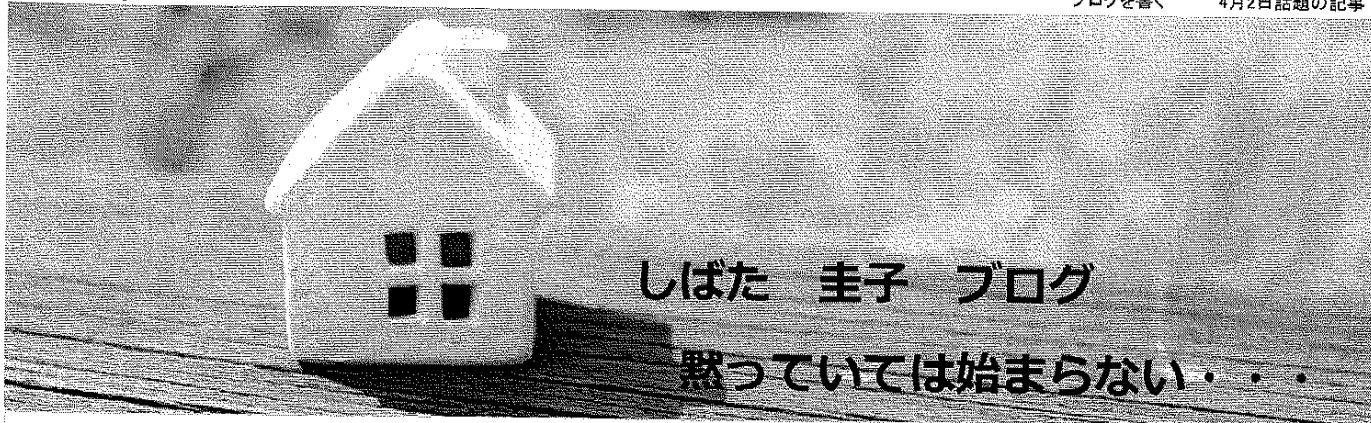 ブログを書く　4月2日話題の記事
しばた　圭子　ブログ
黙っていては始まらない・・・